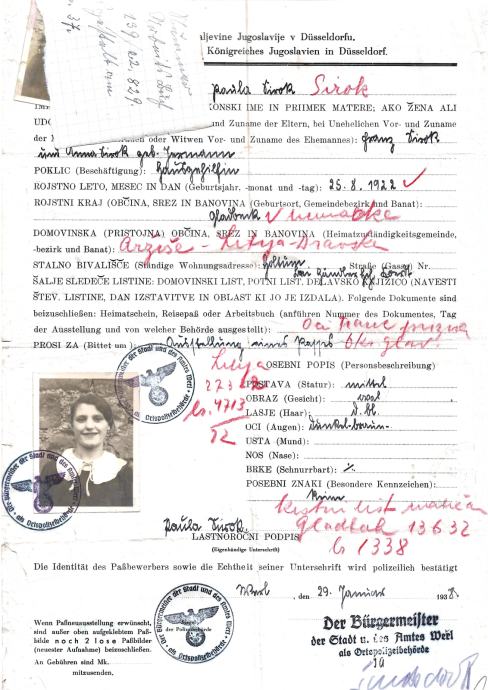 aljevine Jugoslavije v Düsseldorfu.
Königreiches Jugoslavien in Düsseldorf.
139, 22, 829,
37.
Paula Sirok Sirok
ONSKI IME IN PRIIMEK MATERE; AKO ŽENA ALI
UDO und Zuname der Eltern, bei Unehelichen Vor- und Zuname
der oder Witwen Vor- und Zuname des Ehemannes): Franz Sirok
und Anna Sirok geb. Hermann
POKLIC (Beschäftigung): Hausgehilfin
ROJSTNO LETO, MESEC IN DAN (Geburtsjahr, -monat und -tag): 25. 8. 1922
ROJSTNI KRAJ (OBČINA, SREZ IN BANOVINA (Geburtsort, Gemeindebezirk und Banat):
Gladbeck v
DOMOVINSKA (PRISTOJNA) OBČINA, SREZ IN BANOVINA (Heimatzuständigkeitsgemeinde,
-bezirk und Banat): Aržiše - Litija - Dravska
STALNO BIVALIŠČE (Ständige Wohnungsadresse): Straße (Gasse) Nr.
ŠALJE SLEDEČE LISTINE: DOMOVINSKI LIST, POTNI LIST, DELAVSKO KNJIŽICO (NAVESTI
ŠTEV. LISTINE, DAN IZSTAVITVE IN OBLAST KI JO JE IZDALA). Folgende Dokumente sind
beizuschließen: Heimatschein, Reisepaß oder Arbeitsbuch (anführen Nummer des Dokumentes, Tag
der Ausstellung und von welcher Behörde ausgestellt): Oči Franc
PROSI ZA (Bittet um) Ausstellung eines Passes
Litija OSEBNI POPIS (Personsbeschreibung)
POSTAVA (Statur): mittel
OBRAZ (Gesicht): oval
LASJE (Haar): d. bl.
Čs. 4713
OCI (Augen): dunkel-braun
USTA (Mund):
NOS (Nase):
BRKE (Schnurrbart):
POSEBNI ZNAKI (Besondere Kennzeichen):
keine
krstni list
Gladbek 13 6 32
Paula Sirok.
LASTNOROČNI PODPIS
(Eigenhändige Unterschrift)
Čs 1338
Die Identität des Paßbewerbers sowie die Echtheit seiner Unterschrift wird polizeilich bestätigt
Werl, den 29. Januar 1938.
Wenn Paßneuausstellung erwünscht,
sind außer oben aufgeklebtem Paß-
bilde noch 2 lose Paßbilder
(neuester Aufnahme) beizuschließen.
An Gebühren sind Mk.
mitzusenden.
Der Bürgermeister
der Stadt u. des Amtes Werl
als Ortspolizeibehörde
Der Bürgermeister der Stadt und des Amtes Werl
als Ortspolizeibehörde